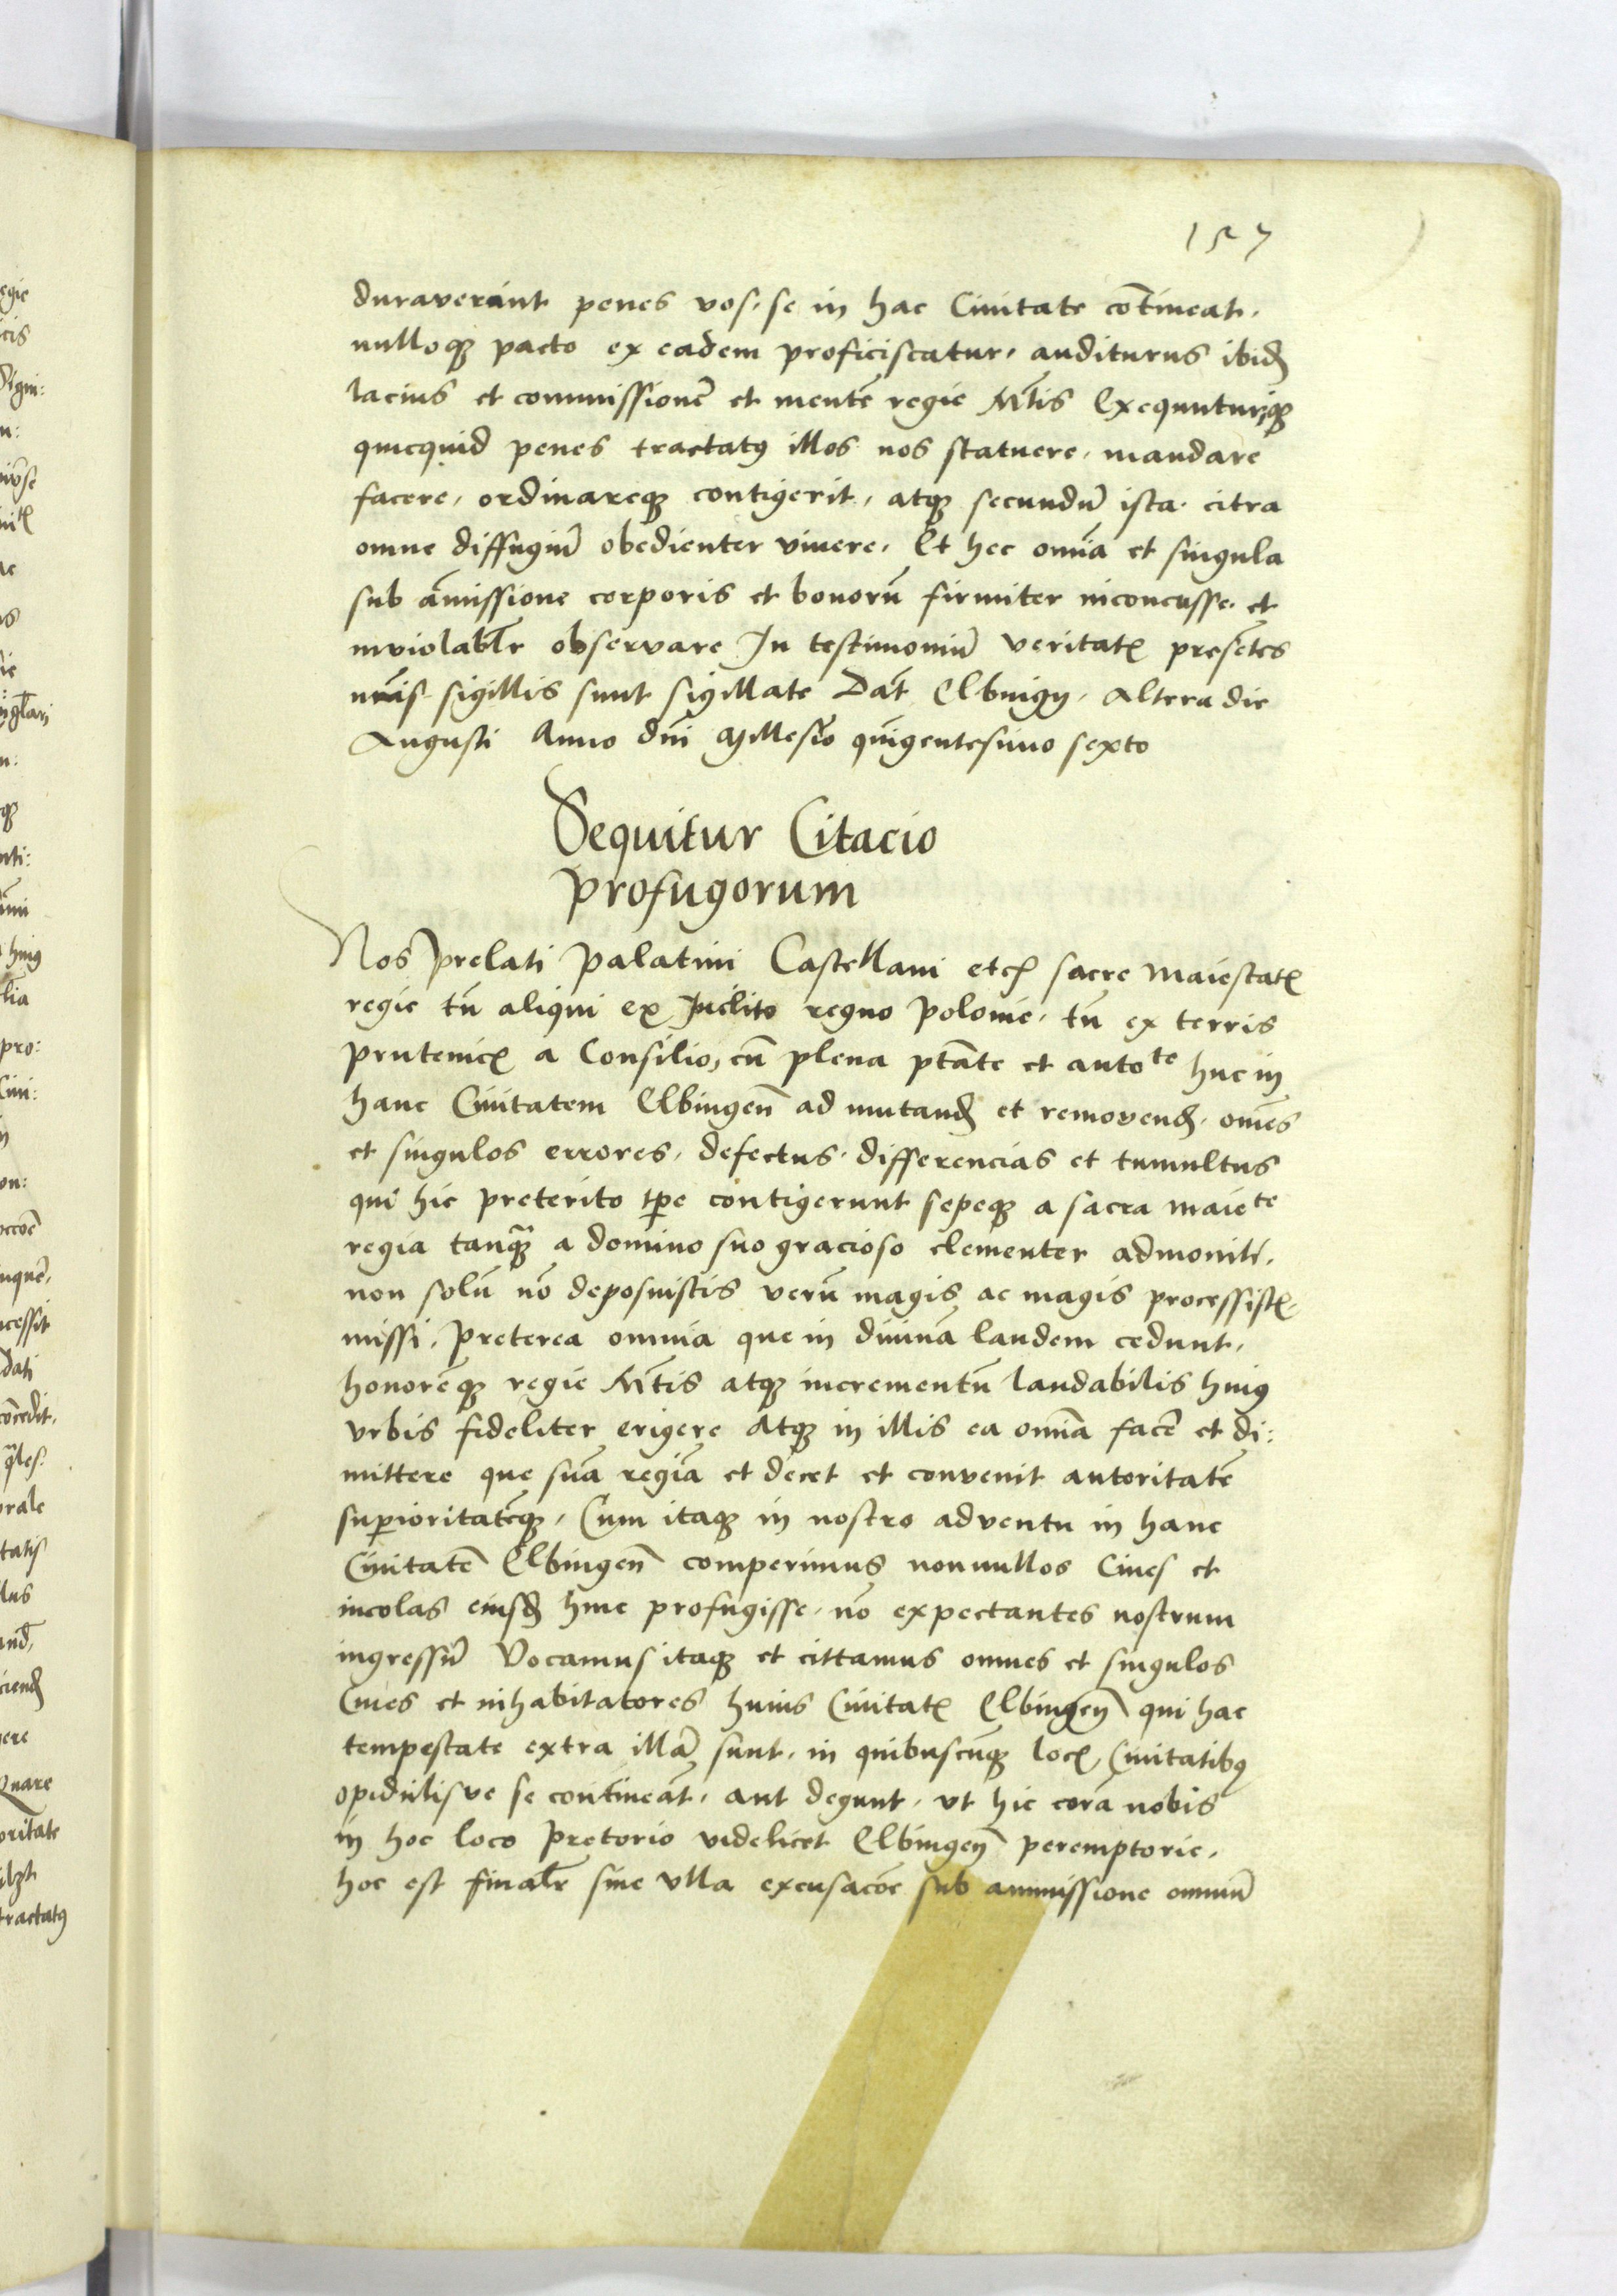 157
duraverint penes vos. se in hac Civitate cōtineat.
nulloqꝫ pacto ex eadem proficiscatur. auditurus ibidē
lacius et commissionē et mentē regie Mtis Exequuturqꝫ
quicquid penes tractatꝰ illos nos statuere. mandare
facere. ordinareqꝫ contigerit. atqꝫ secundū ista. citra
omne diffugiū obedienter vivere. Et hec omīa et singula
sub āmissione corporis et bonorū firmiter inconcusse. et
inviolablr observare In testimoniū veritatꝭ presētes
nrīs sigillis sunt sigillate Dat Elbingij. Altera die
Augusti Anno dnī Millesīo quīgentesimo sexto
Sequitur Citacio
profugorum
Nos Prelati Palatini Castellani etcꝭ sacre Maiestatꝭ
regie tū aliqui ex Inclito regno Polonie. tū ex terris
prutenicꝭ a Consilio, cū plena ptāte et autote huc in
hanc Civitatem Elbingeñ ad mutandꝭ et removendꝭ. omēs
et singulos errores. defectus. differencias et tumultus
qui hic preterito tꝑe contigerunt sepeqꝫ a sacra maiete
regia tanqꝫ a domino suo gracioso clementer admoniti.
non solū nō deposuistis verū magis ac magis processistꝭ.
missi. Preterea omnia que in divinā laudem cedunt.
honorēqꝫ regie Mtis atqꝫ incrementū laudabilis huiꝰ
urbis fideliter erigere Atqꝫ in illis ea omīa facē et di:
mittere que suā regiā et decet et convenit autoritatē
suꝑioritatēqꝫ. Cum itaqꝫ in nostro adventu in hanc
Civitatē Elbingeñ comperimus nonnullos Cives et
incolas eiusdꝭ hinc profugisse. nō expectantes nostrum
ingressū Vocamus itaqꝫ et cittamus omnes et singulos
Cives et inhabitatores huius Civitatꝭ Elbingeñ qui hac
tempestate extra illā sunt. in quibuscūqꝫ locꝭ, Civitatibꝰ
opidulisve se contineāt. aut degunt. vt hic corā nobis
in hoc loco Pretorio videlicet Elbingeñ peremptorie.
hoc est finalr sine vlla excusacōe sub ammissione omniū